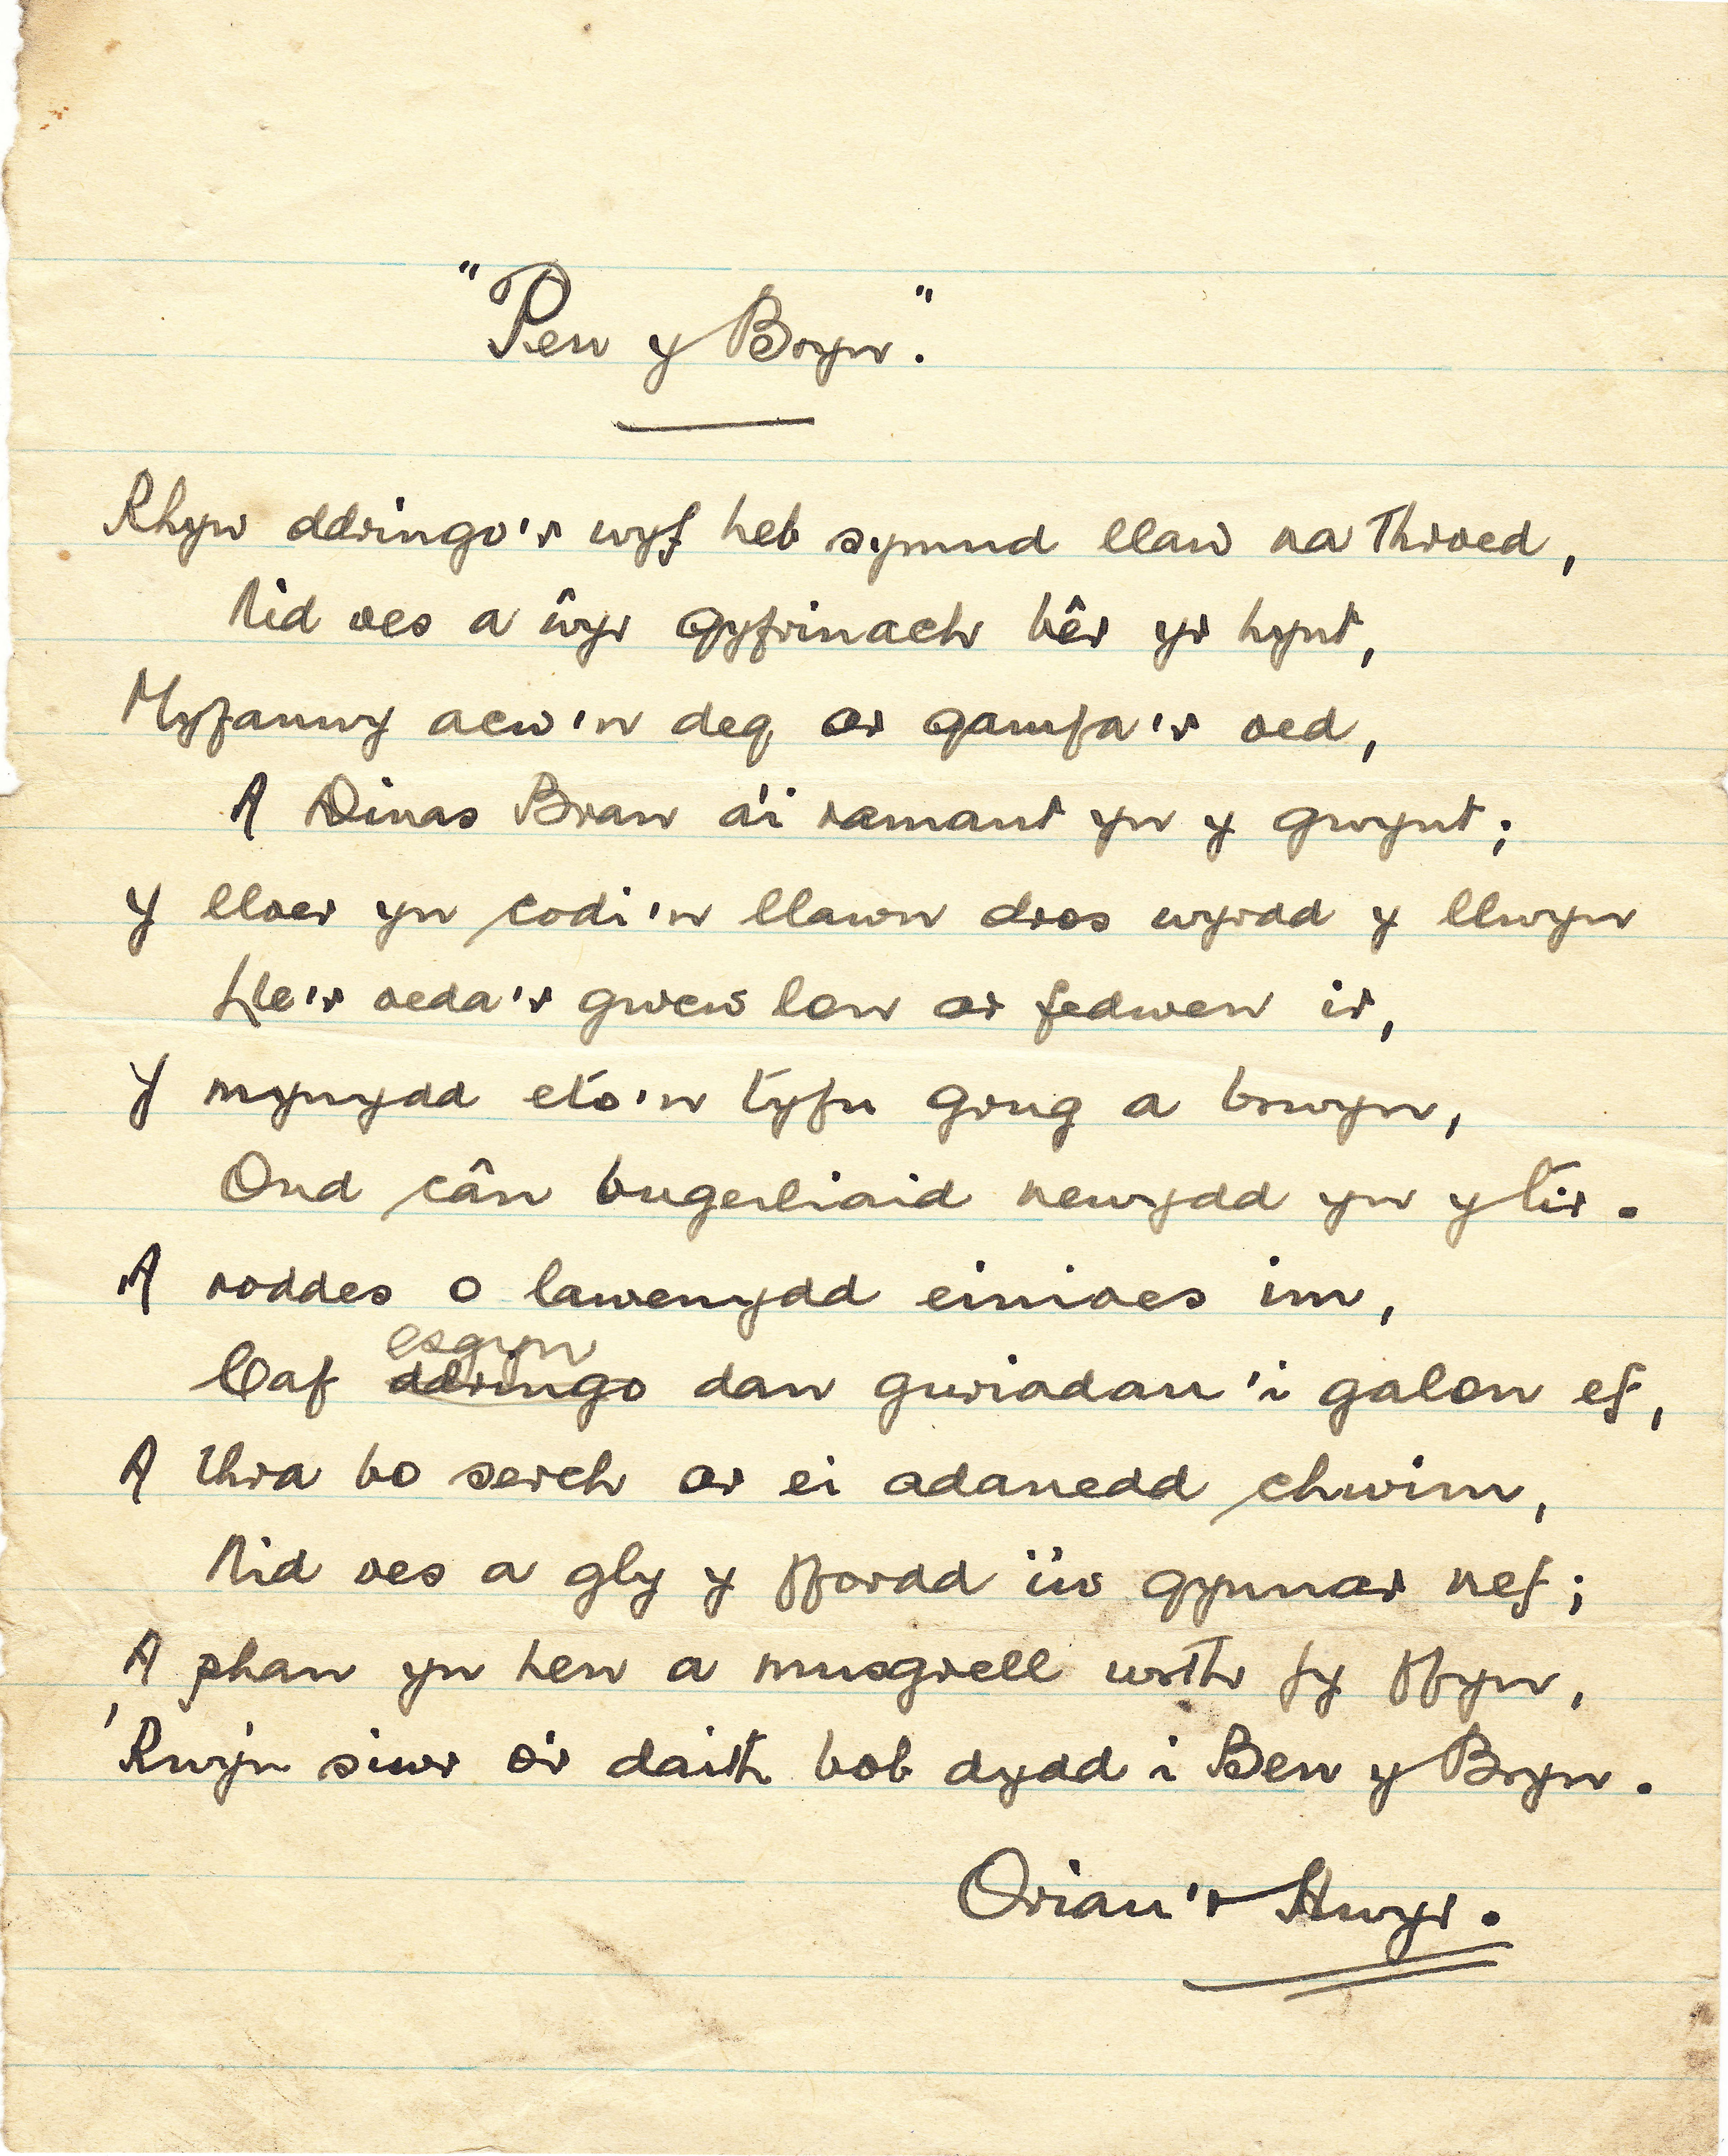 "Pen y Bryn."
Rhyw ddringo'r wyf heb symud llaw na throed,
Nid oes a ŵyr gyfrinach bêr yr hynt,
Myfanwy acw'n deg ar gamfa'r oed,
A Dinas Bran a'i ramant yn y gwynt;
Y lloer yn codi'n llawn dros wyrdd y llwyn
Lle'r oeda'r gwew lon ar fedwen ir,
Y mynydd eto'n tyfu grug a brwyn,
Ond cân bugeiliaid newydd yn y tir.
A roddes o lawenydd einioes im,
esgyn
Caf ddringo dan guriadau'i galon ef,
A thra bo serch ar ei adanedd chwim,
Nid oes a gly y ffordd i'w gynnar nef;
A phan yn hen a musgrell wrth fy ffyn,
'Rwy'n siwr o'r daith bob dydd i Ben y Bryn.
Oriau'r Hwyr.